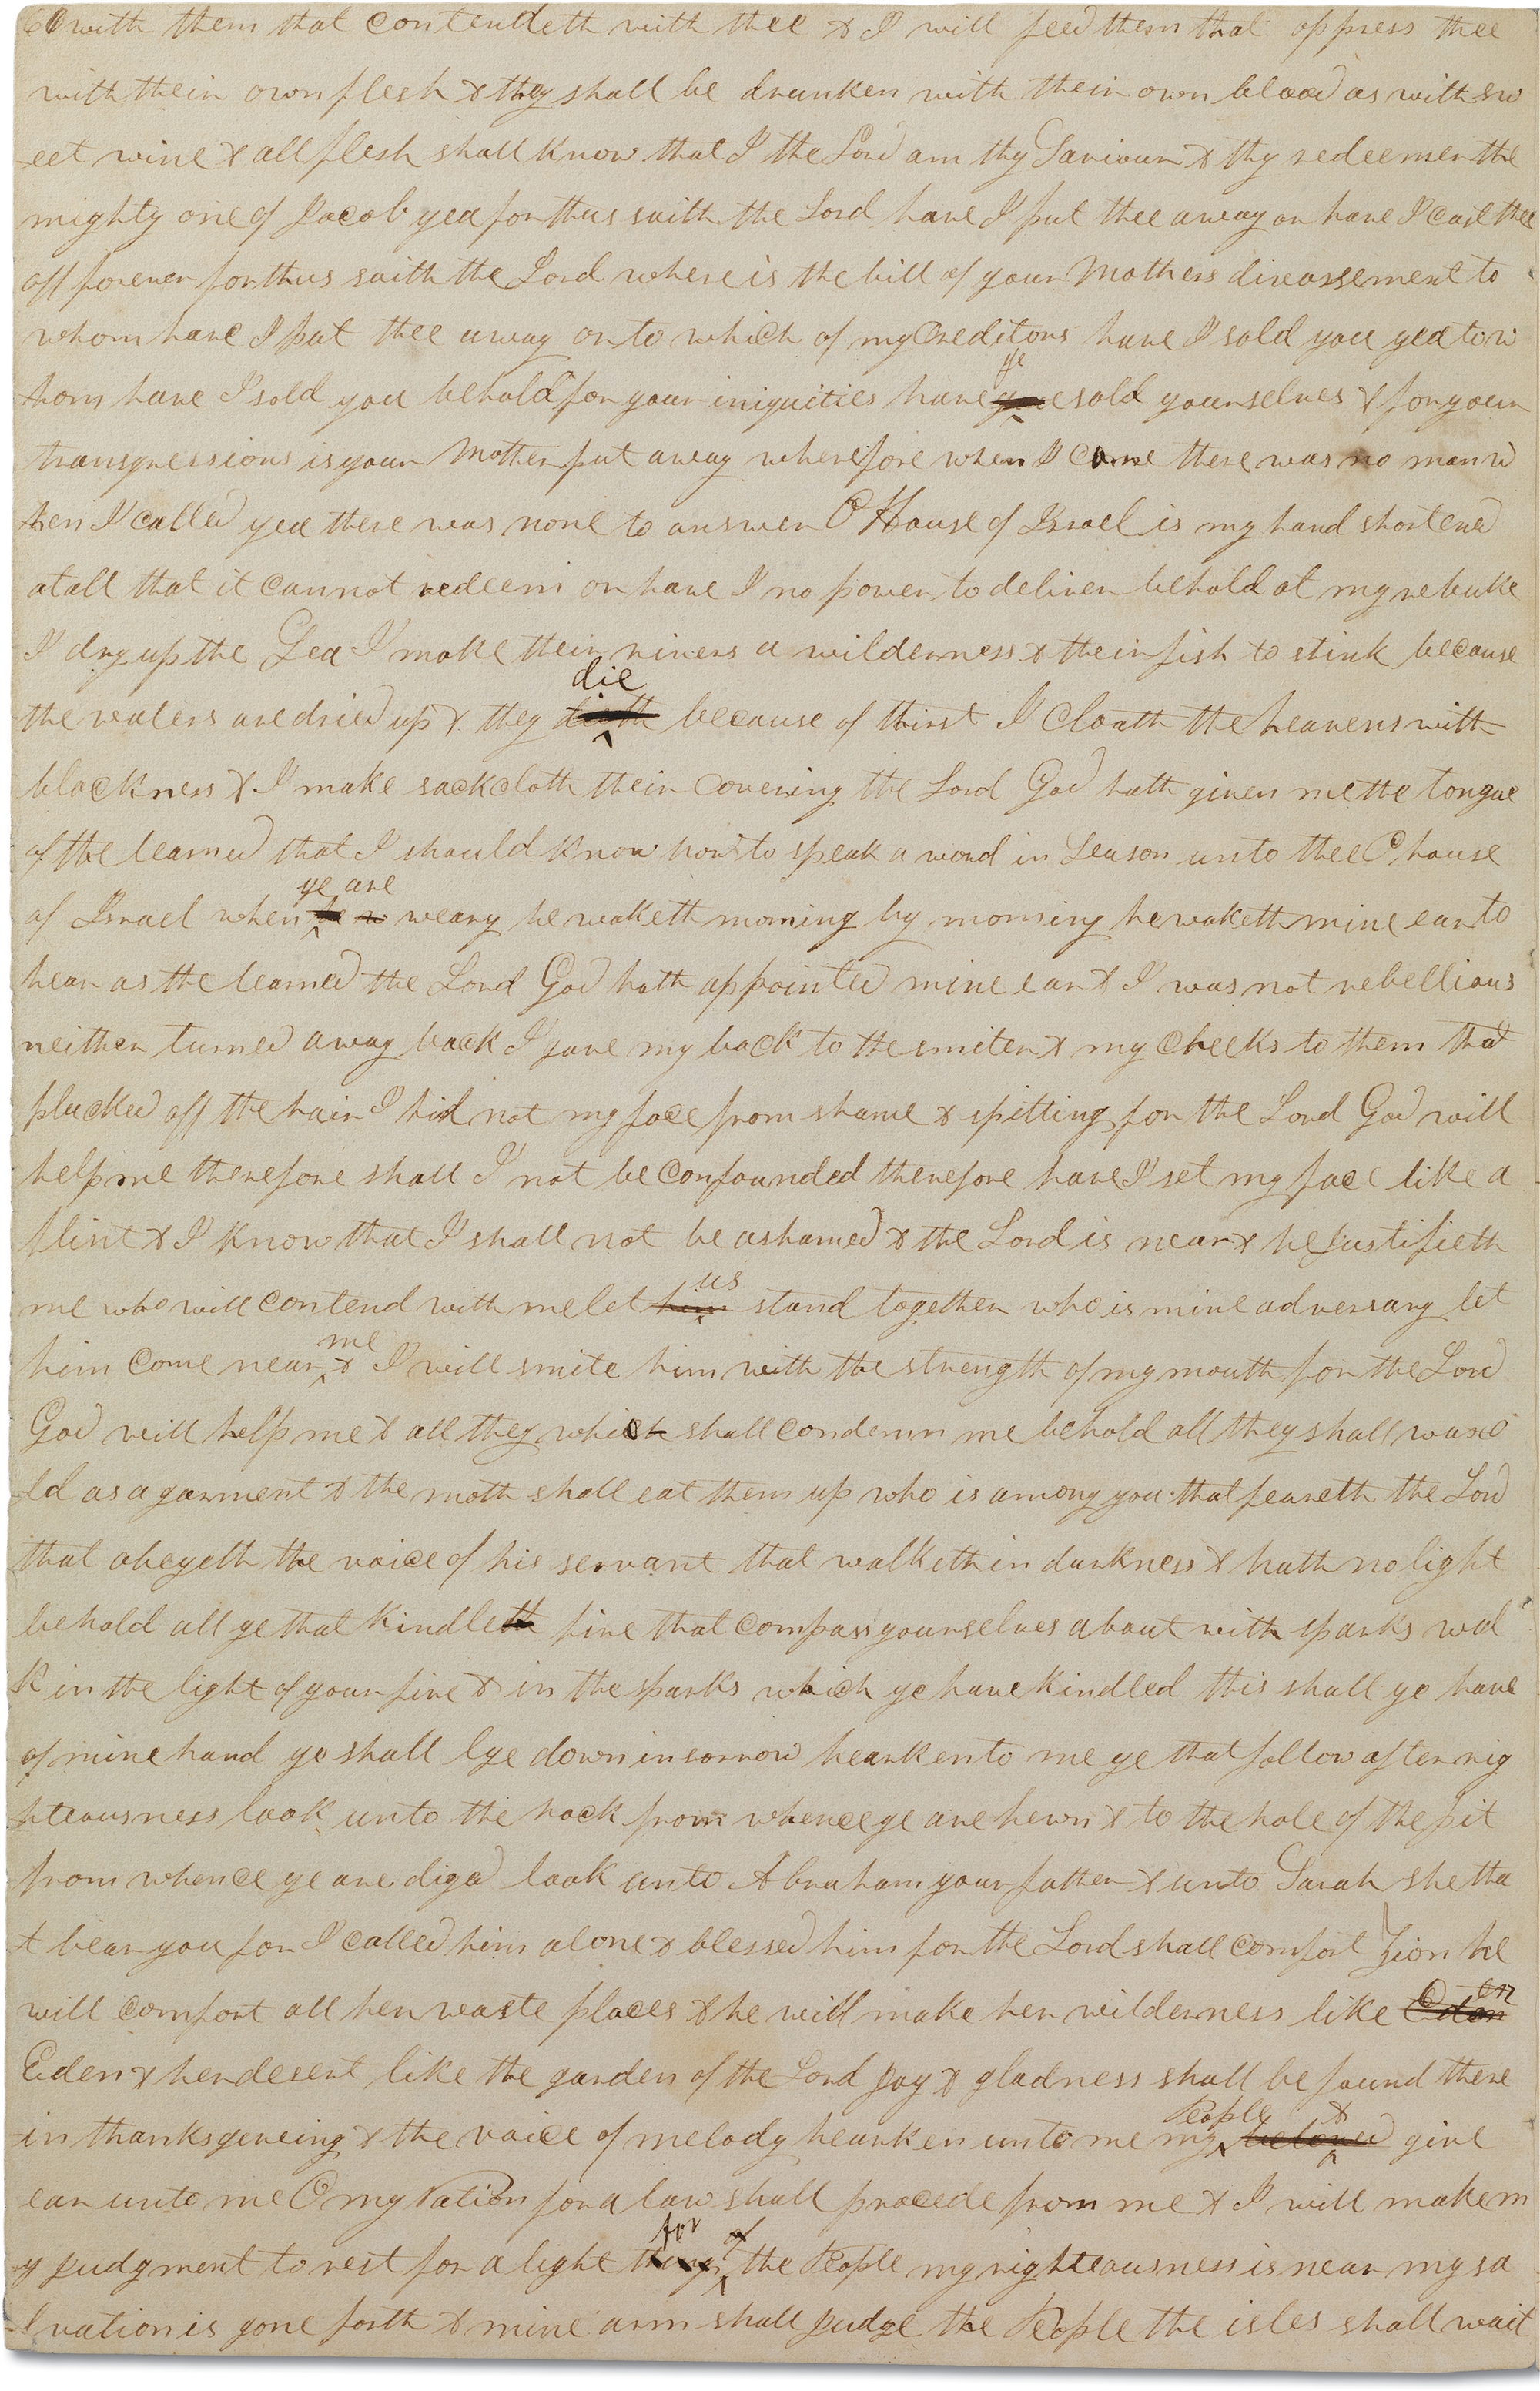 60 with them that contendeth with thee & I will feed them that oppress thee
with their own flesh & they shall be drunken with their own blood as with sw
-eet wine & all flesh shall know that I the Lord am thy Saviour & thy redeemer the
mighty one of Jacob yea for thus saith the Lord have I put thee away or have I cast thee
off forever for thus saith the Lord where is the bill of your Mothers divorssement to
whom have I put thee away or to which of my Creditors have I sold you yea to w
hom have I sold you behold for your iniquities have ye sold yourselves & for your
transgressions is your Mother put away wherefore when I come there was no man w
hen I called yea there was none to answer O House of Israel is my hand shortened
at all that it cannot redeem or have I no power to deliver behold at my rebuke
I dry up the Sea I make their rivers a wilderness & their fish to stink because
the waters are dried up & they dieth die because of thirst I cloath the heavens with
blackness & I make sackcloth their covering the Lord God hath given me the tongue
of the learned that I should know how to speak a word in Season unto thee O house
of Israel when he is ye are weary he waketh morning by morning he waketh mine ear to
hear as the learned the Lord God hath appointed mine ear & I was not rebellious
neither turned away back I gave my back to the smiter & my cheeks to them that
plucked off the hair I hid not my face from shame & spitting for the Lord God will
help me therefore shall I not be confounded therefore have I set my face like a
flint & I know that I shall not be ashamed & the Lord is near & he Justifieth
me who will contend with me let him us stand together who is mine adversary let
him come near me & I will smite him with the strength of my mouth for the Lord
God will help me & all they which shall condemn me behold all they shall wax o
ld as a garment & the moth shall eat them up who is among you that feareth the Lord
that obeyeth the voice of his servant that walketh in darkness & hath no light
behold all ye that kindleth fire that compass yourselves about with sparks wal
k in the light of your fire & in the sparks which ye have kindled this shall ye have
of mine hand ye shall lye down in sorrow hearken to me ye that follow after rig
hteousness look unto the rock from whence ye are hewn & to the hole of the pit
from whence ye are digd look unto Abraham your father & unto Sarah she tha
t bear you for I called him alone & blessed him for the Lord shall comfort Zion he
will comfort all her waste places & he will make her wilderness like Edon en
Eden & her desert like the garden of the Lord joy & gladness shall be found there
in thanksgeveing & the voice of melody hearken unto me my People beloved & give
ear unto me O my Nation for a law shall procede from me & I will make m
y judgment to rest for a light thing for of the People my righteousness is near my sa
lvation is gone forth & mine arm shall judge the People the isles shall wait